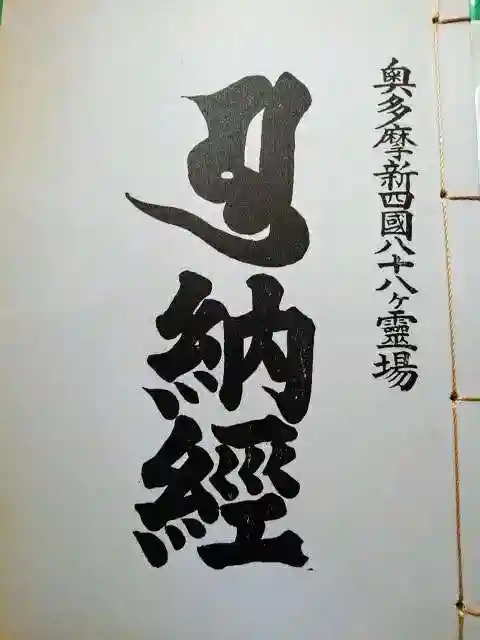 奥多摩新四國八十八ヶ靈場
納經